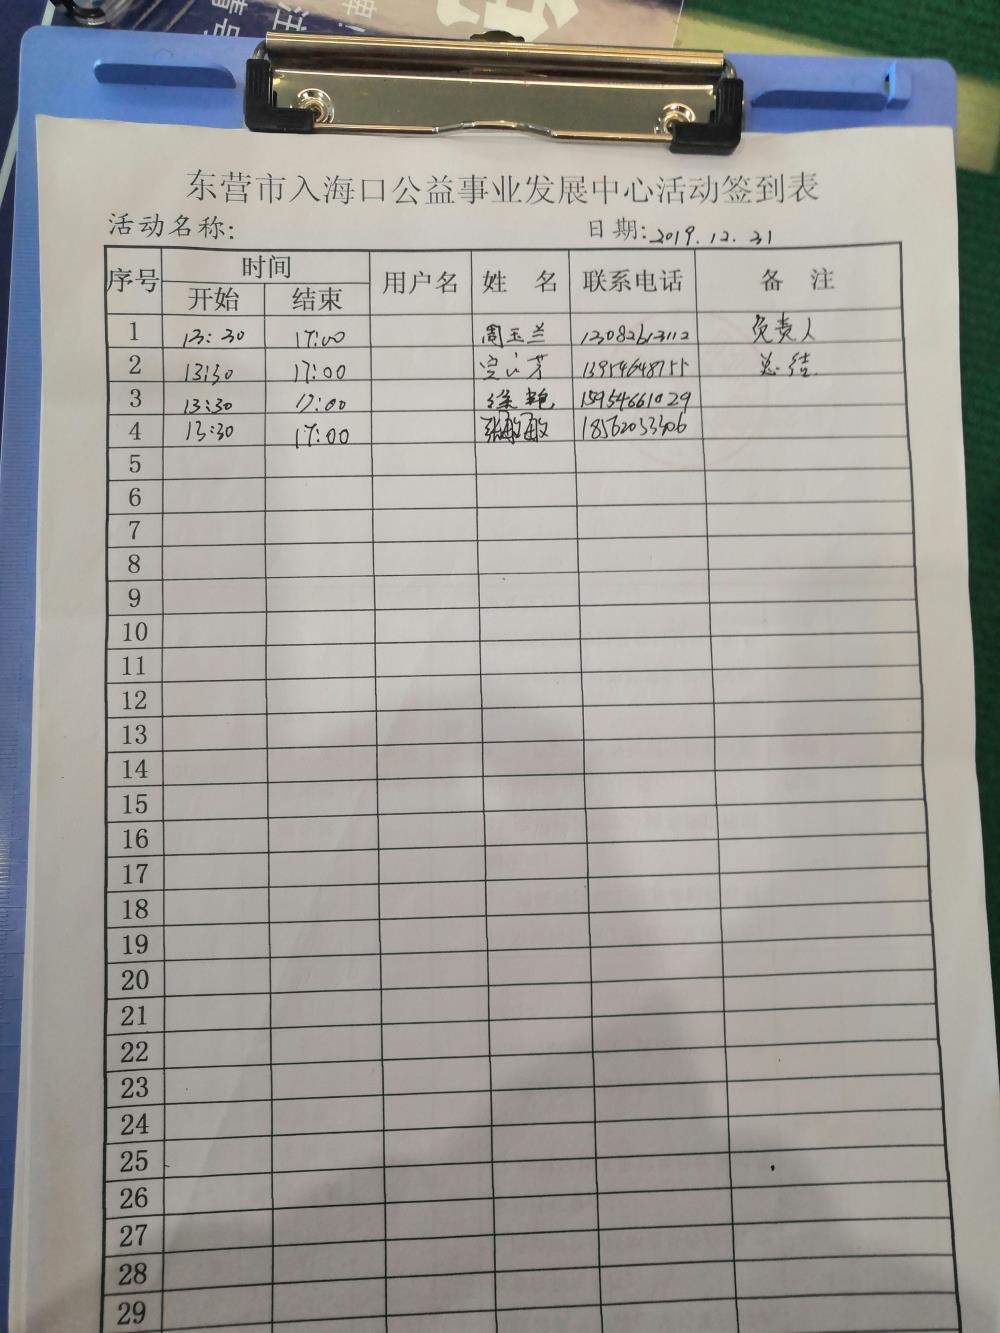 东营市入海口公益事业发展中心活动签到表
活动名称: 日期:2019.12.21
序号 时间 用户名 姓 名 联系电话 备 注
开始 结束
1 13:30 17:00 周玉兰 13082613112 负责人
2 13:30 17:00 芳 13954648755 总结
3 13:30 17:00 徐艳 15954661029
4 13:30 17:00 张敏敏 18562033406
5
6
7
8
9
10
11
12
13
14
15
16
17
18
19
20
21
22
23
24
25
26
27
28
29